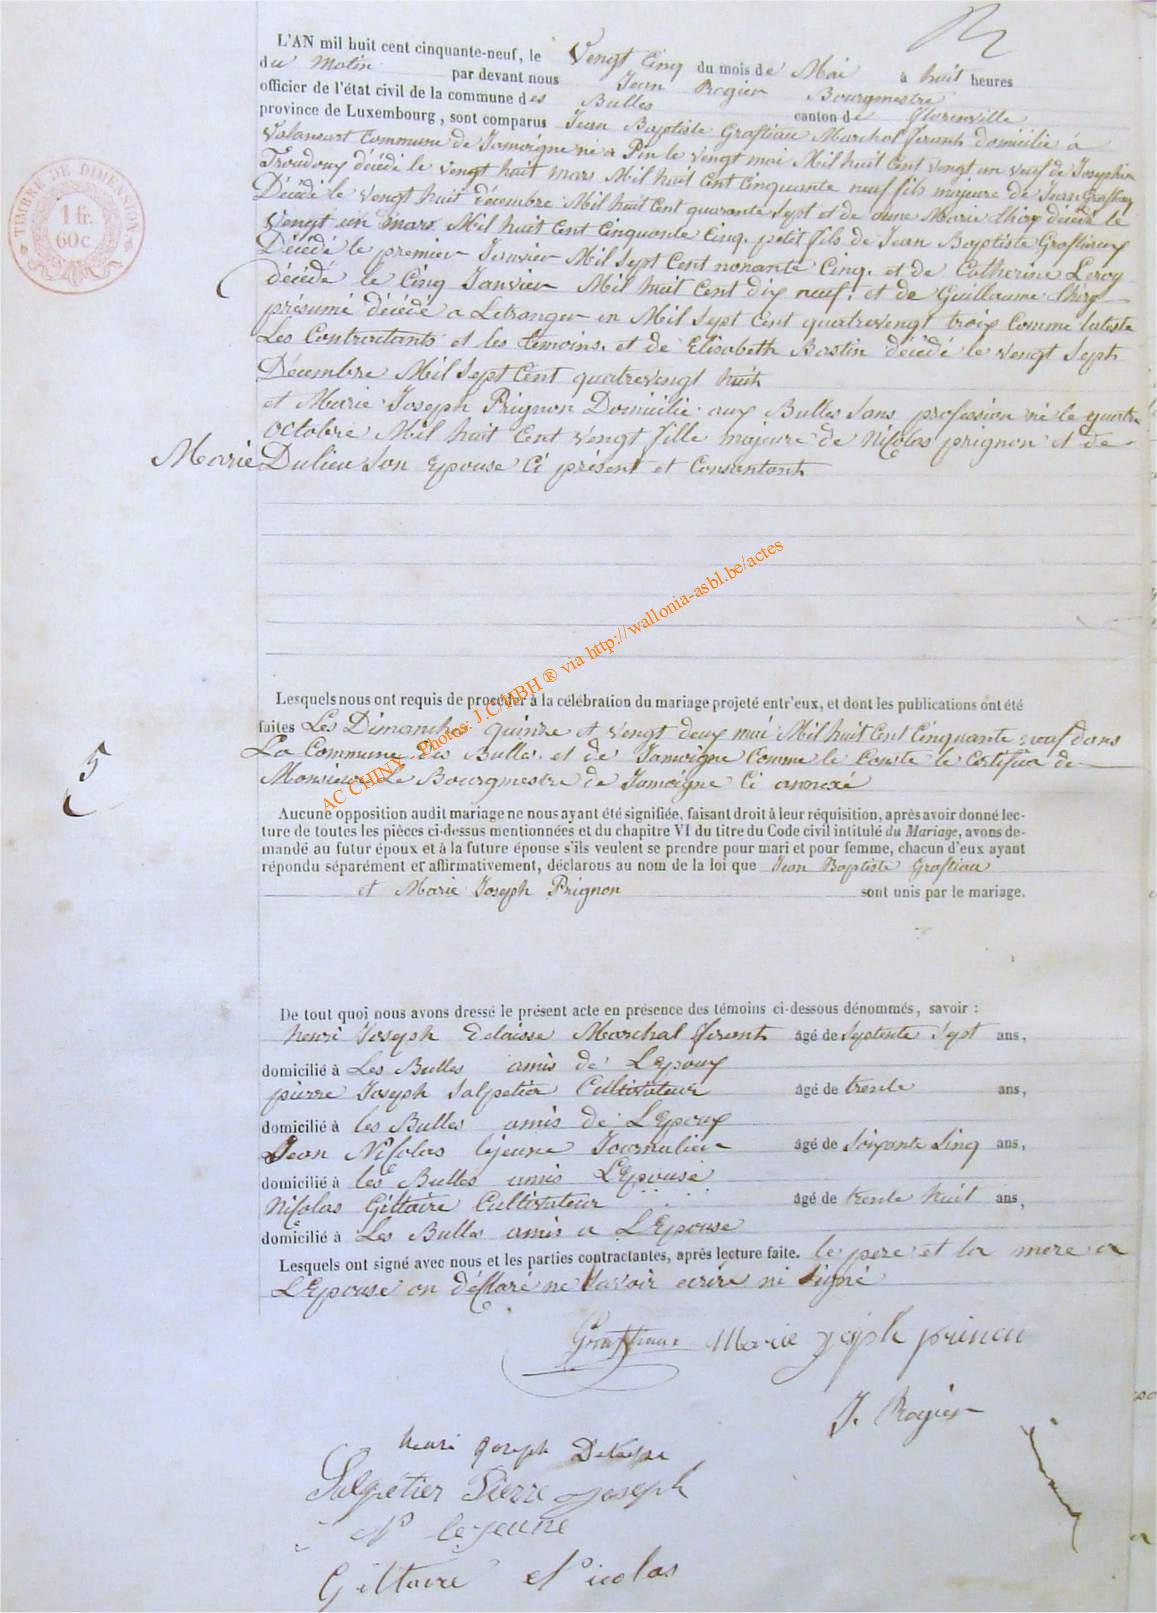 L'AN mil huit cent cinquante-neuf, le Vengt Cinq du mois de Mai à huit heures
du Matin par devant nous Jean Rogier Bourgmestre
officier de l'état civil de la commune des Bulles canton de Florenville
province de Luxembourg, sont comparus Jean Baptiste Graftiau Marchal ferant domicilié à
Valansart Commune de Jamoigne né a Pin le vengt mai Mil huit Cent vengt un veuf de Josephine
décédé le vengt huit mars Mil huit Cent Cinquante neuf fils majeure de Jean Graftiau
Décédé le vengt huit décembre Mil huit Cent quarante Sept et de Anne Marie thiry décédé le
vengt un mars Mil huit Cent Cinquante Cinq. petit fils de Jean Baptiste Graftiaux
Décédé le premier Janvier Mil Sept Cent nonante Cinq. et de Catherine Leroy
décédé le Cinq Janvier Mil huit Cent dix neuf. et de Guillaume thiry
présumé décédé a Letranger en Mil Sept Cent quatrevengt troix Comme lateste
Les Contractants et les témoins. et de Elisabeth Bastin décédé le vengt Sept
Décembre Mil Sept Cent quatrevengt huit
et Marie Joseph Prignon Domicilié aux Bulles Sans profession né le quatre
Octobre Mil huit Cent vengt fille majeure de Nicolas prignon et de
Marie Dulieu Son Epouse Ci présent et Consantant
TIMBRE DE DIMENSION
1 fr.
60 c.
Lesquels nous ont requis de procéder à la célébration du mariage projeté entr'eux, et dont les publications ont été
faites Les Dimanches quinze et vengt deux mai Mil huit Cent Cinquante neuf dans
La Commune des Bulles et de Jamoigne Comme le Conste le Certificat de
Monsieur Le Bourgmestre de Jamoigne Ci annexé
5
Aucune opposition audit mariage ne nous ayant été signifiée, faisant droit à leur réquisition, après avoir donné lec-
ture de toutes les pièces ci-dessus mentionnées et du chapitre VI du titre du Code civil intitulé du Mariage, avons de-
mandé au futur époux et à la future épouse s'ils veulent se prendre pour mari et pour femme, chacun d'eux ayant
répondu séparément et affirmativement, déclarons au nom de la loi que Jean Baptiste Graftiau
et Marie Joseph Prignon sont unis par le mariage.
De tout quoi nous avons dressé le présent acte en présence des témoins ci-dessous dénommés, savoir :
henri Joseph Delaisse Marchal ferant âgé de Septente Sept ans,
domicilié à Les Bulles amis de L'Epoux
pierre Joseph Salpetier Cultivateur âgé de trente ans,
domicilié à les Bulles amis de L'Epoux
Jean Nicolas lejeune Journalier âgé de Soixante Cinq ans,
domicilié à les Bulles amis L'Epouse
Nicolas Giltaire Cultivateur âgé de trente huit ans,
domicilié à Les Bulles amis a L'Epouse
Lesquels ont signé avec nous et les parties contractantes, après lecture faite. le pere et la mere a
L'Epouse on déclaré ne Savoir ecrire ni Signé
Graftiaux Marie Joseph prinon
J. Rogier
henri Joseph Delaisse
Salpetier Pierre Joseph
N lejeune
Giltaire Nicolas
AC CHINY - Photos: J.C. HBH ® via http://wallonia-asbl.be/actes